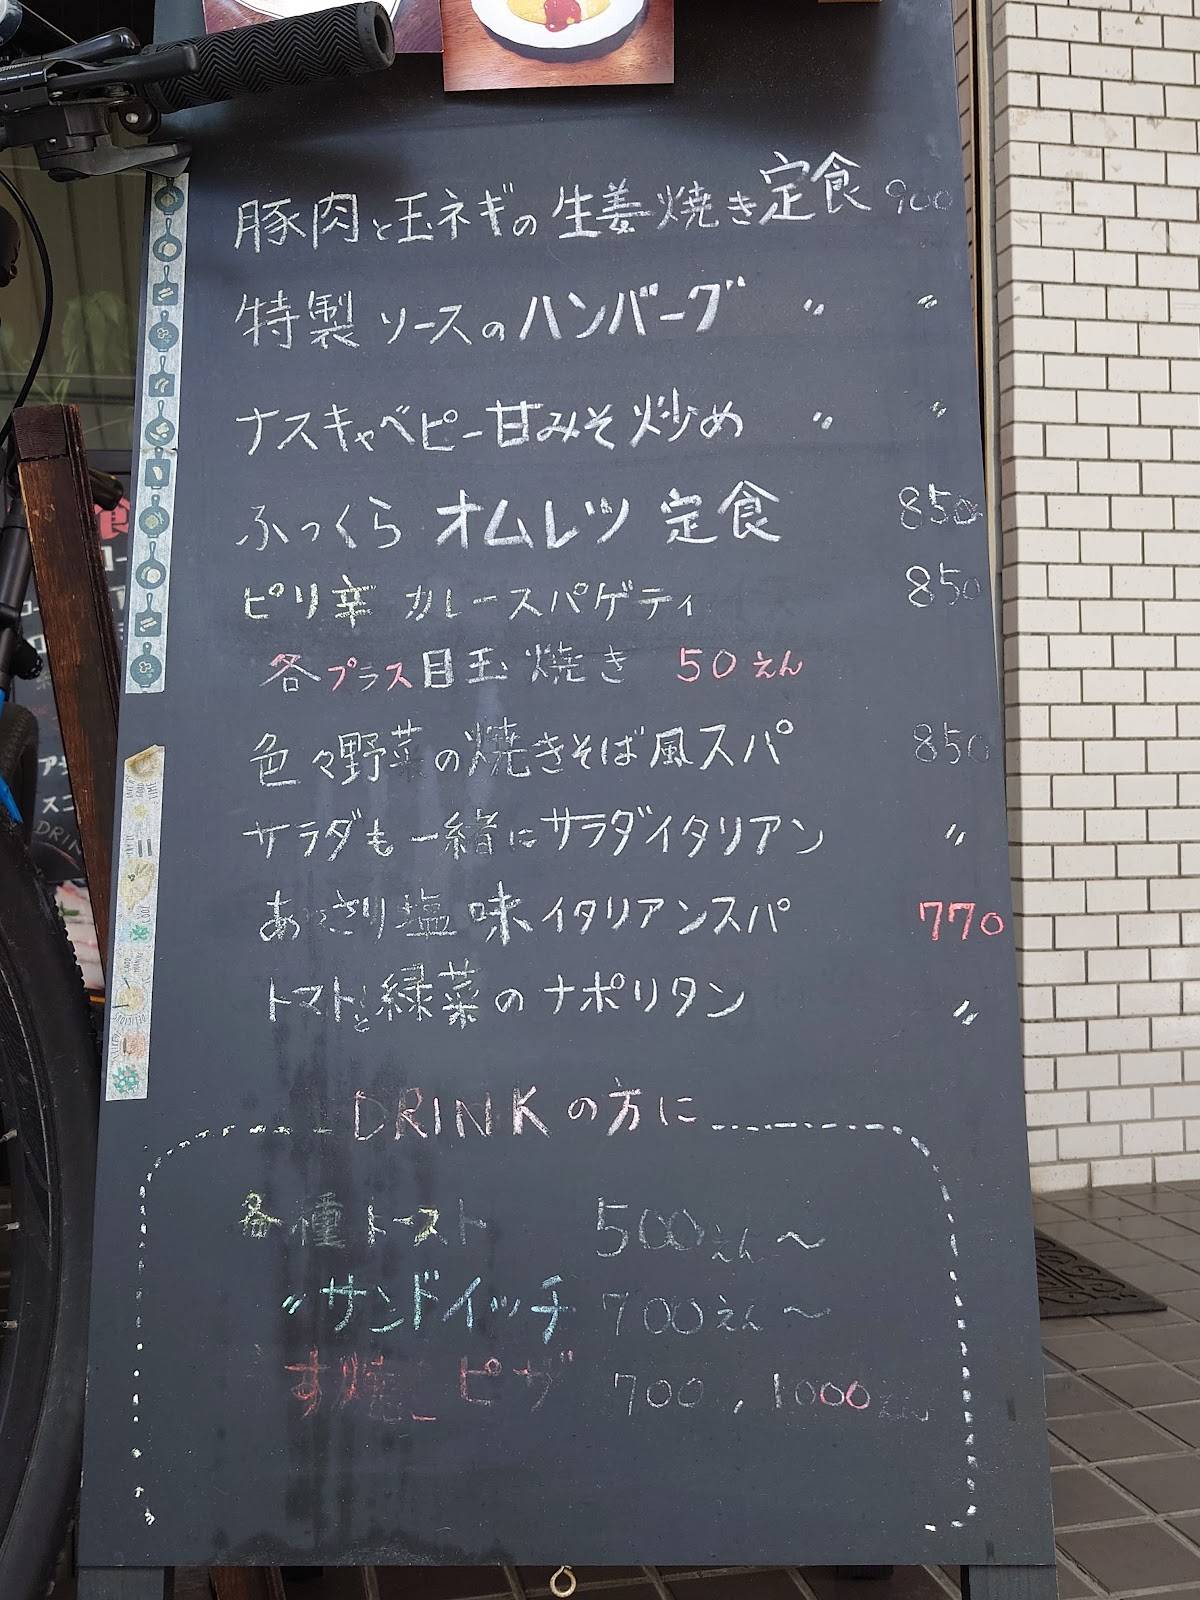 豚肉と玉ネギの生姜焼き定食 900
特製ソースのハンバーグ 〃 〃
ナスキャベピー甘みそ炒め 〃 〃
ふっくら オムレツ 定食 850
ピリ辛 カレースパゲティ 850
各プラス目玉焼き 50えん
色々野菜の焼きそば風スパ 850
サラダも一緒にサラダイタリアン 〃
あさり塩味イタリアンスパ 770
トマトと緑菜のナポリタン 〃
DRINKの方に
各種トースト 500えん〜
〃サンドイッチ 700えん〜
ピザ 700, 1000えん